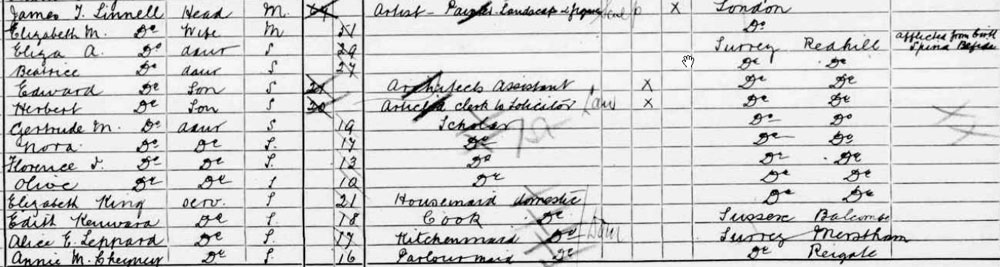 James T. Linnell Head M. Artist - Painter landscape & figure sculp X London
Elizabeth M. Do Wife M 51 Do
Eliza A. Do daur S 29 Surrey Redhill afflicted from birth Spina Befeda
Beatrice Do daur S 27 Do Do
Edward Do Son S 21 Architects Assistant X Do Do
Herbert Do Son S 20 Articled clerk to Solicitor Law X Do Do
Gertrude M. Do daur S 19 Scholar Do Do
Nora Do Do S. 17 Do Do Do
Florence J. Do Do S. 13 Do Do Do
Olive Do Do S 10 Do Do Do
Elizabeth King serv. S. 21 Housemaid domestic Do Do
Edith Do S. 18 Cook Do Sussex Balcombe
Alice E. Leppard Do S. 17 Kitchenmaid Do Dom Surrey Merstham
Annie M. Cheyney Do S. 16 Parlourmaid Do Do Reigate